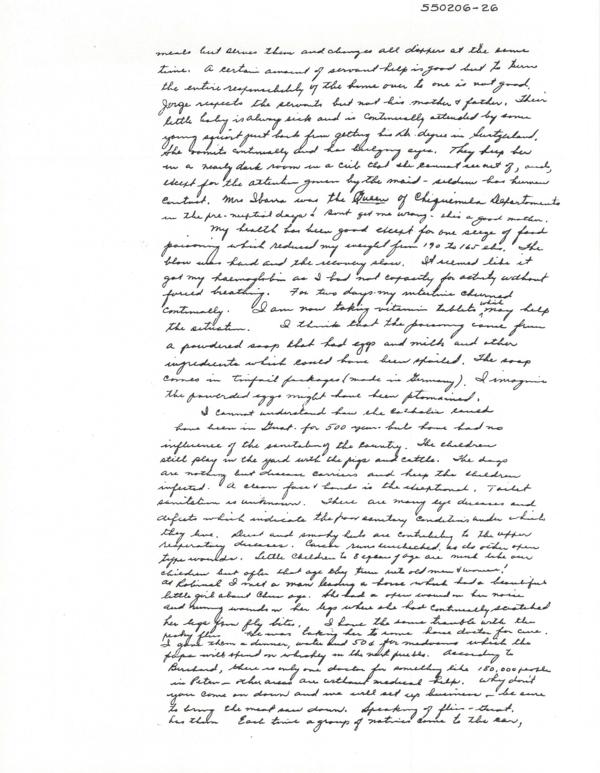 550206-26
meals but serves them and changes all diapers at the same
time. A certain amount of servant help is good but to turn
the entire responsibility of the home over to one is not good.
Jorge respects the servants but not his mother & father. Their
little baby is always sick and is continually attended by some
young squirt just back from getting his Dr. degree in Switzerland.
She vomits continually and has bulging eyes. They keep her
in a nearly dark room in a crib that she cannot see out of, and,
except for the attention given by the maid - seldom has human
contact. Mrs Ibarra was the Queen of Chiquimula Departmento
in the pre-nuptial days! Dont get me wrong - she is a good mother.
My health has been good except for one seige of food
poisoning which reduced my weight from 190 to 165 lbs. The
blow was hard and the recovery slow. It seemed like it
got my haemoglobin as I had not capacity for activity without
forced breathing. For two days my intestine churned
continually. I am now taking vitamin tablets which may help
the situation. I think that the poisoning came from
a powdered soap that had eggs and milk and other
ingredients which could have been spoiled. The soap
comes in tinfoil packages (made in Germany). I imagine
the powdered eggs might have been ptomained.
I cannot understand how the Catholic
have been in Guat. for 500 years but have had no
influence of the sanitation of the country. The children
still play in the yard with the pigs and cattle. The dogs
are nothing but disease carriers and keep the children
infected. A clean face & hands is the exceptional. Toilet
sanitation is unknown. There are many eye diseases and
defects which indicate the poor sanitary conditions under which
they live. Dust and smoky huts are contributing to the upper
respiratory diseases. Cancer runs unchecked, as do other open
type wounds. Little children to 8 years of age are much like our
children but after that age they turn into old men & women!
At Rabinal I met a man leading a horse which had a beautiful
little girl about Chris age. She had a open wound on her noise
and running wounds on her legs where she had continually scratched
her legs from fly bites. I have the same trouble with the
pesky flies. He was taking her to some horse doctor for cure.
I gave them a dinner, water and 50¢ for medicine which the
papa will spend on whiskey in the next pueblo. According to
Burchard, there is only one doctor for something like 180,000 people
in Peten - other areas are without medical help. Why don't
you come on down and we will set up business - be sure
to bring the meat saw down. Speaking of flies - that
has them Each time a group of natives come to the car,